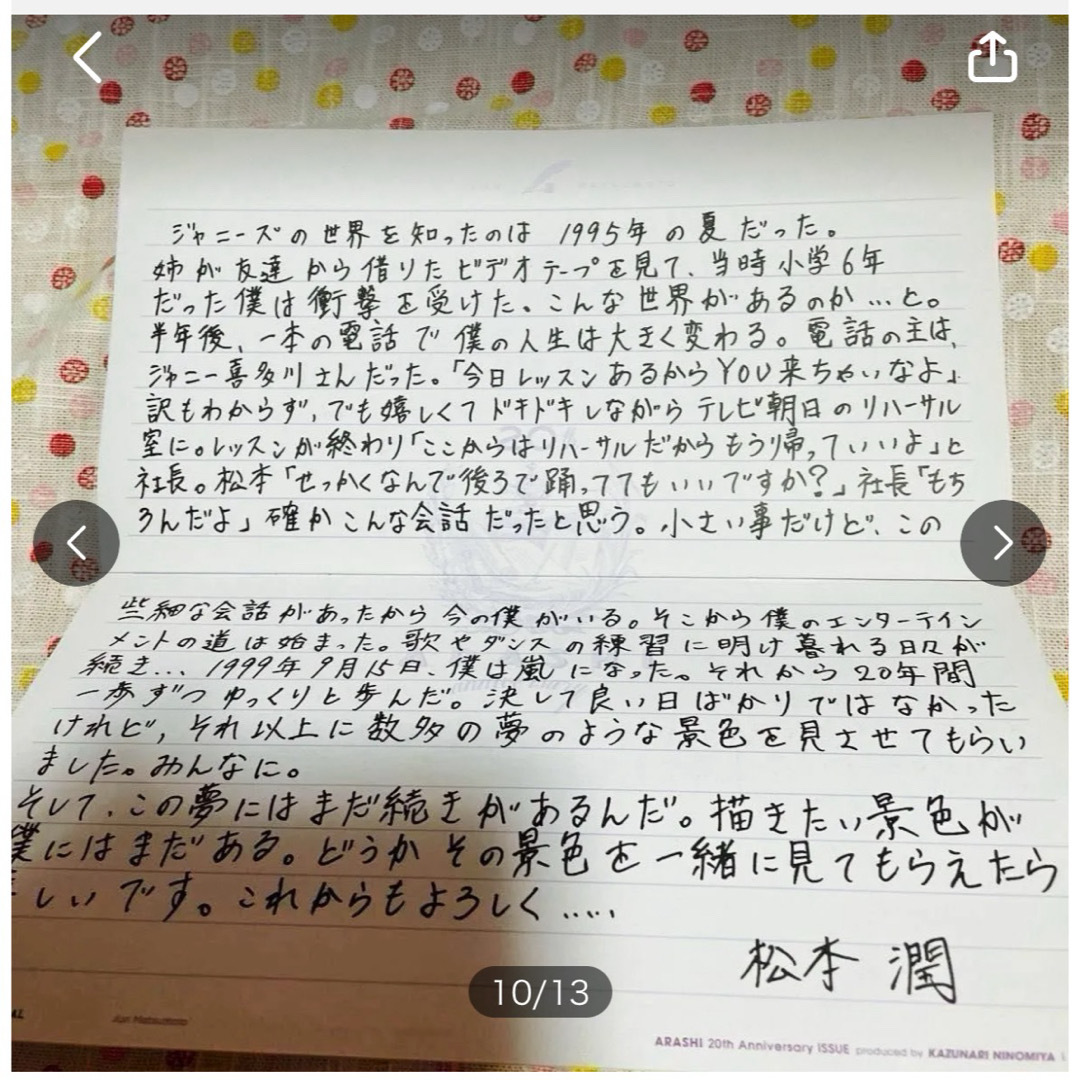 ジャニーズの世界を知ったのは 1995年の夏だった。
姉が友達から借りたビデオテープを見て、当時小学6年
だった僕は衝撃を受けた、こんな世界があるのか…と。
半年後、一本の電話で僕の人生は大きく変わる。電話の主は、
ジャニー喜多川さんだった。「今日レッスンあるからYOU来ちゃいなよ」
訳もわからず、でも嬉しくてドキドキしながらテレビ朝日のリハーサル
室に。レッスンが終わり「ここからはリハーサルだからもう帰っていいよ」と
社長。松本「せっかくなんで後ろで踊っててもいいですか?」社長「もち
ろんだよ」確かこんな会話だったと思う。小さい事だけど、この
些細な会話があったから今の僕がいる。そこから僕のエンターテイン
メントの道は始まった。歌やダンスの練習に明け暮れる日々が
続き… 1999年9月15日、僕は嵐になった。それから20年間
一歩ずつゆっくりと歩んだ。決して良い日ばかりではなかった
けれど、それ以上に数多の夢のような景色を見させてもらい
ました。みんなに。
そして、この夢にはまだ続きがあるんだ。描きたい景色が
僕にはまだある。どうかその景色を一緒に見てもらえたら
しいです。これからもよろしく.....
松本 潤
10/13
Jun Matsumoto
ARASHI 20th Anniversary ISSUE produced by KAZUNARI NINOMIYA